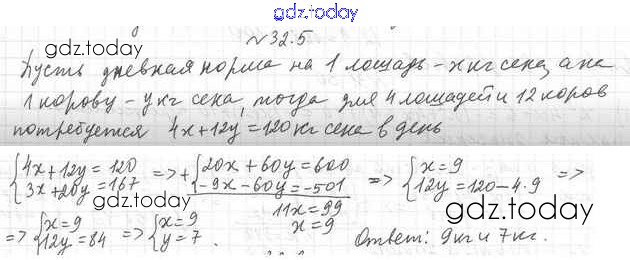 gdz.today
№32.5
gdz.today gdz.today
Пусть дневная норма на 1 лошадь – x кг сена, а на
1 корову – y кг сена, тогда для 4 лошадей и 12 коров
потребуется 4x+12y=120 кг сена в день
{4x+12y=120 => +{20x+60y=600 => {x=9 =>
{3x+20y=167 {-9x-60y=-501 {12y=120-4·9
11x=99
x=9
gdz.today gdz.today
=> {x=9 => {x=9
{12y=84 {y=7. Ответ: 9кг и 7кг.